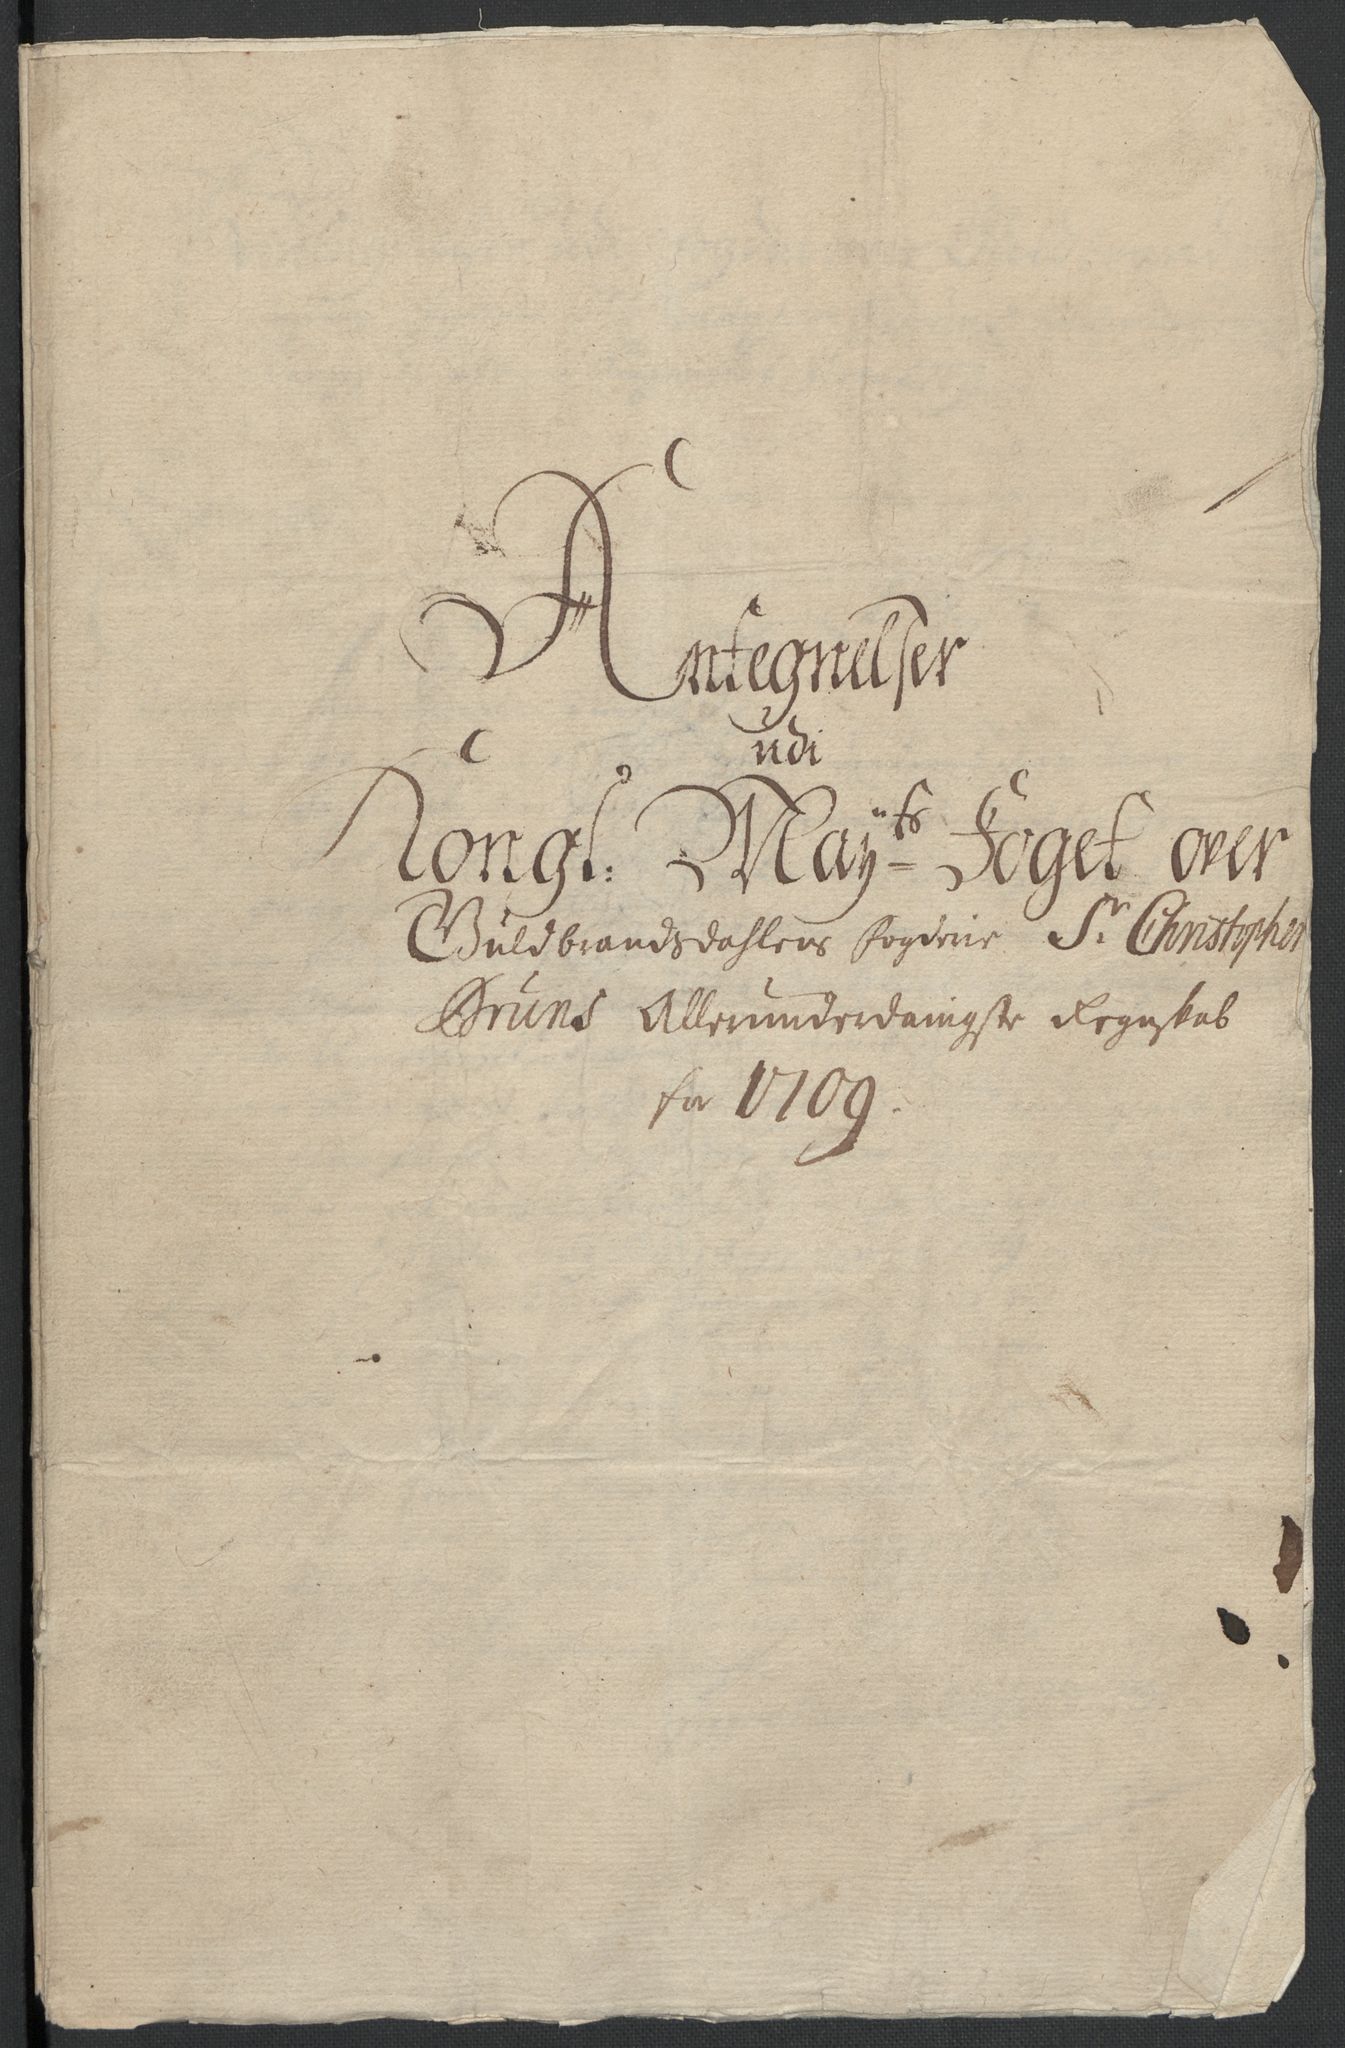 Antegnelser
udi
Kongl: May.ts Foget over
Guldbrandsdahlens fogderie Sr. Christopher
Bruns Allerunderdanigste Regnskab
for 1709.